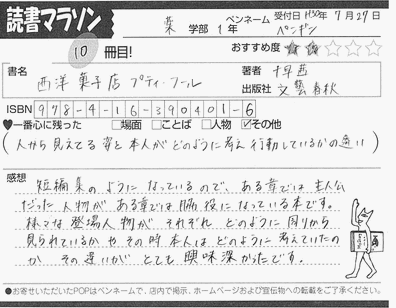 読書マラソン
薬 学部 1年 ペンネーム ペンギン 受付日 H30年7月27日
10 冊目! おすすめ度 ★★☆
書名 西洋菓子店プティ・フール
著者 千早茜
出版社 文藝春秋
ISBN 978-4-16-390401-6
♥一番心に残った □場面 □ことば □人物 ☑その他
(人から見えてる姿と本人がどのように考え行動しているかの違い)
感想
短編集のようになっているので、ある章では主人公
だった人物がある章では脇役になっている本です。
様々な登場人物がそれぞれどのように周りから
見られているかやその時本人はどのように考えていたの
か その違いがとても興味深かったです。
●お寄せいただいたPOPはペンネームで、店内で掲示、ホームページおよび宣伝物への転載をご了承ください。